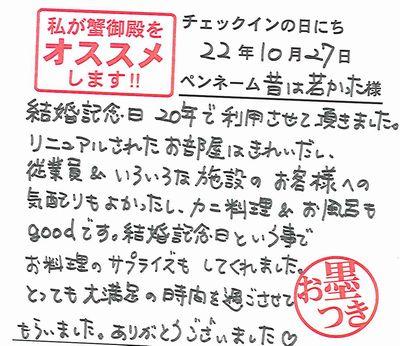 私が蟹御殿を
オススメ
します!!
チェックインの日にち
22年10月27日
ペンネーム 昔は若かった様
結婚記念日 20年で利用させて頂きました。
リニュアルされたお部屋はきれいだし、
従業員&いろいろな施設のお客様への
気配りもよかったし、カニ料理&お風呂も
goodです。結婚記念日という事で
お料理のサプライズもしてくれました。
とっても大満足の時間を過ごさせて
もらいました。ありがとうございました♡
お墨つき